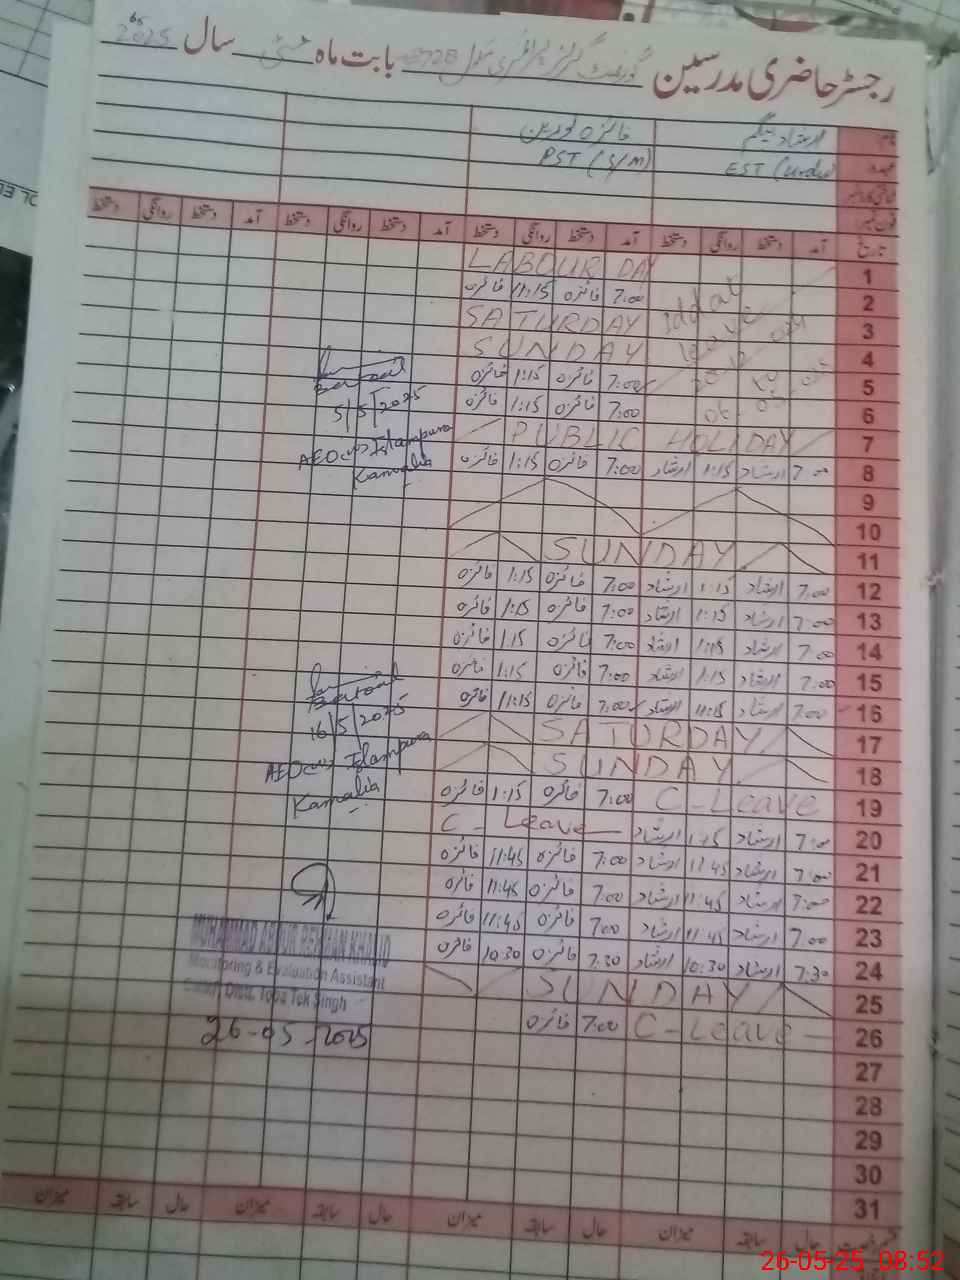 رجسٹر حاضری مدرسین گورنمنٹ گرلز پرائمری سکول 728 بابت ماہ مئی سال 2025
نام ارشاد بیگم فائزہ نورین
عہدہ EST (Urdu) PST (S/M)
تاریخ آمد دستخط روانگی دستخط آمد دستخط روانگی دستخط آمد دستخط روانگی دستخط آمد دستخط روانگی دستخط
1 LABOUR DAY
2 7:00 فائزہ 11:15 فائزہ
3 SATURDAY
4 SUNDAY
5 7:00 فائزہ 1:15 فائزہ
6 7:00 فائزہ 1:15 فائزہ
Iddat
leave
to
7 PUBLIC HOLIDAY
8 7:00 ارشاد 1:15 ارشاد 7:00 فائزہ 1:15 فائزہ
9
10
11 SUNDAY
12 7:00 ارشاد 1:15 ارشاد 7:00 فائزہ 1:15 فائزہ
13 7:00 ارشاد 1:15 ارشاد 7:00 فائزہ 1:15 فائزہ
14 7:00 ارشاد 1:15 ارشاد 7:00 فائزہ 1:15 فائزہ
15 7:00 ارشاد 1:15 ارشاد 7:00 فائزہ 1:15 فائزہ
16 7:00 ارشاد 11:15 ارشاد 7:00 فائزہ 11:15 فائزہ
17 SATURDAY
18 SUNDAY
19 C-Leave 7:00 فائزہ 1:15 فائزہ
20 7:00 ارشاد 1:15 ارشاد C-Leave
21 7:00 ارشاد 11:45 ارشاد 7:00 فائزہ 11:45 فائزہ
22 7:00 ارشاد 11:45 ارشاد 7:00 فائزہ 11:45 فائزہ
23 7:00 ارشاد 11:45 ارشاد 7:00 فائزہ 11:45 فائزہ
24 7:30 ارشاد 10:30 ارشاد 7:30 فائزہ 10:30 فائزہ
25 SUNDAY
26 C-Leave 7:00 فائزہ
27
28
29
30
31
حال سابقہ میزان حال سابقہ میزان حال سابقہ میزان حال سابقہ میزان
5/5/2025
AEO Islampura
Kamalia
16/5/2025
AEO Islampura
Kamalia
MUHAMMAD ABDUR REHMAN KHALID
Monitoring & Evaluation Assistant
Distt. Toba Tek Singh
26-05-2025
26-05-25 08:52